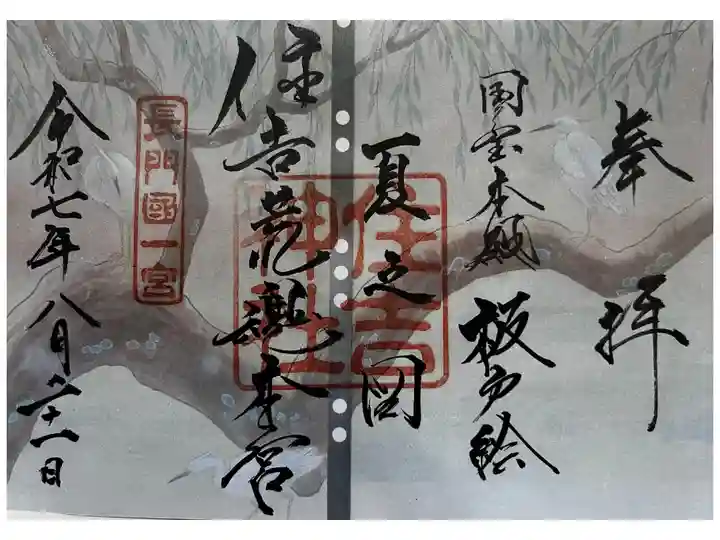 奉拝
国宝本殿 板戸絵
夏之図
住吉神社
住吉荒魂本宮
長門國一宮
令和七年八月二十一日